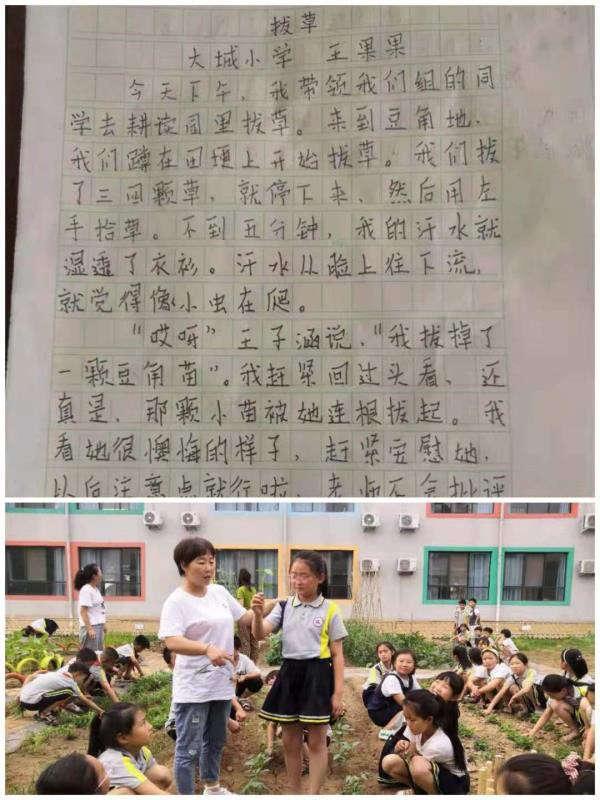 拔草
大城小学 王果果
今天下午，我带领我们组的同
学去耕读园里拔草。来到豆角地，
我们蹲在田埂上开始拔草。我们拔
了三四颗草，就停下来，然后用左
手拾草。不到五分钟，我的汗水就
湿透了衣衫。汗水从脸上往下流，
就觉得像小虫在爬。
“哎呀”王子涵说，“我拔掉了
一颗豆角苗”。我赶紧回过头看，还
真是，那颗小苗被她连根拔起。我
看她很懊悔的样子，赶紧安慰她，
以后注意点就行啦，老师不会批评